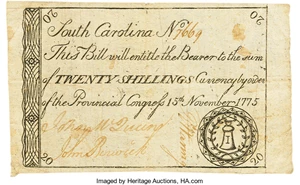 20 20
South Carolina No 7669
This Bill will entitle the Bearer to the sum
of TWENTY SHILLINGS Currency by order
of the Provincial Congress 15th November 1775
John
20 20
Imaged by Heritage Auctions, HA.com